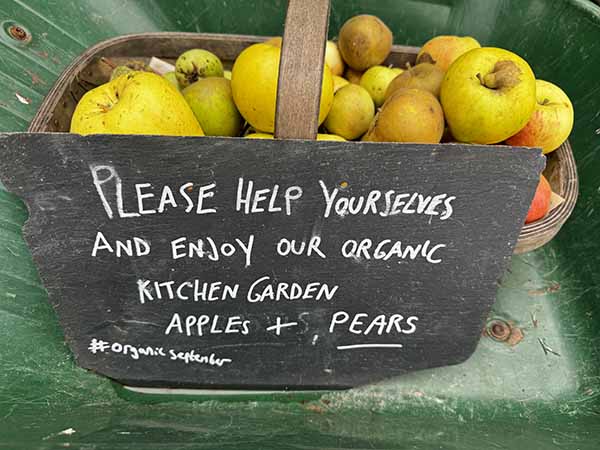 PLEASE HELP YOURSELVES
AND ENJOY OUR ORGANIC
KITCHEN GARDEN
APPLES + PEARS
#organic september